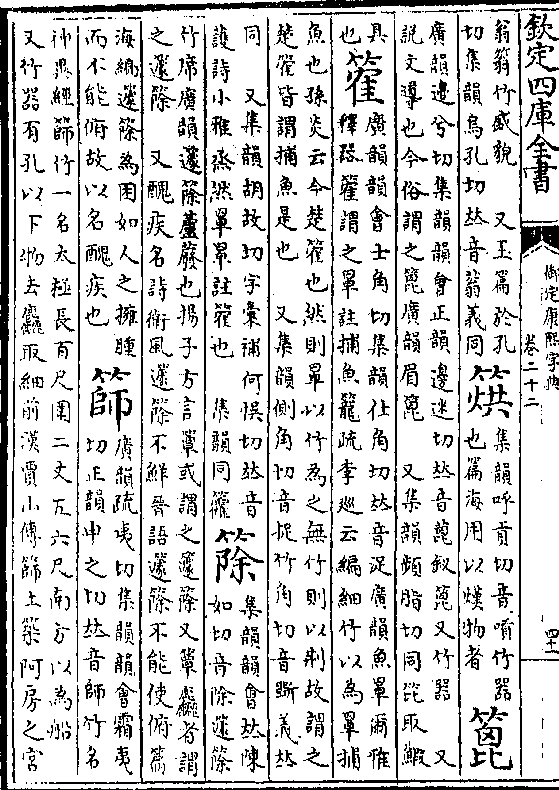 欽定四庫全書
御定康熙字典
卷二十二
四十一
翁蓊竹盛貌 又玉篇於孔
切集韻烏孔切𠀤音蓊義同
𥯕
集韻呼貢切音嗊竹器
也篇海用以烘物者
箆
廣韻邊兮切集韻韻會正韻邊迷切𠀤音𩔗釵箆又竹器 又
說文導也今俗謂之箆廣韻眉箆 又集韻頻脂切同笓取鰕
具
篧
廣韻韻會士角切集韻仕角切𠀤音浞廣韻魚罩爾雅
也
釋器篧謂之罩註捕魚籠疏李巡云編細竹以為罩捕
魚也孫炎云今楚篧也然則罩以竹為之無竹則以荆故謂之
楚篧皆謂捕魚是也 又集韻側角切音捉竹角切音斲義𠀤
同 又集韻胡故切字彙補何悞切𠀤音
護詩小雅烝然罩罩註篧也 集韻同籱
篨
集韻韻會𠀤陳
如切音除籧篨
竹席廣韻籧篨蘆𥴩也揚子方言簟或謂之籧篨又簟麤者謂
之籧篨 又醜疾名詩衞風籧篨不鮮晉語籧篨不能使俯篇
海編籧篨為囷如人之擁腫
而不能俯故以名醜疾也
篩
廣韻疏夷切集韻韻會霜夷
切正韻申之切𠀤音師竹名
神異經篩竹一名太極長百尺圍二丈五六尺南方以為船
又竹器有孔以下物去麤取細前漢賈山傳篩土築阿房之宮